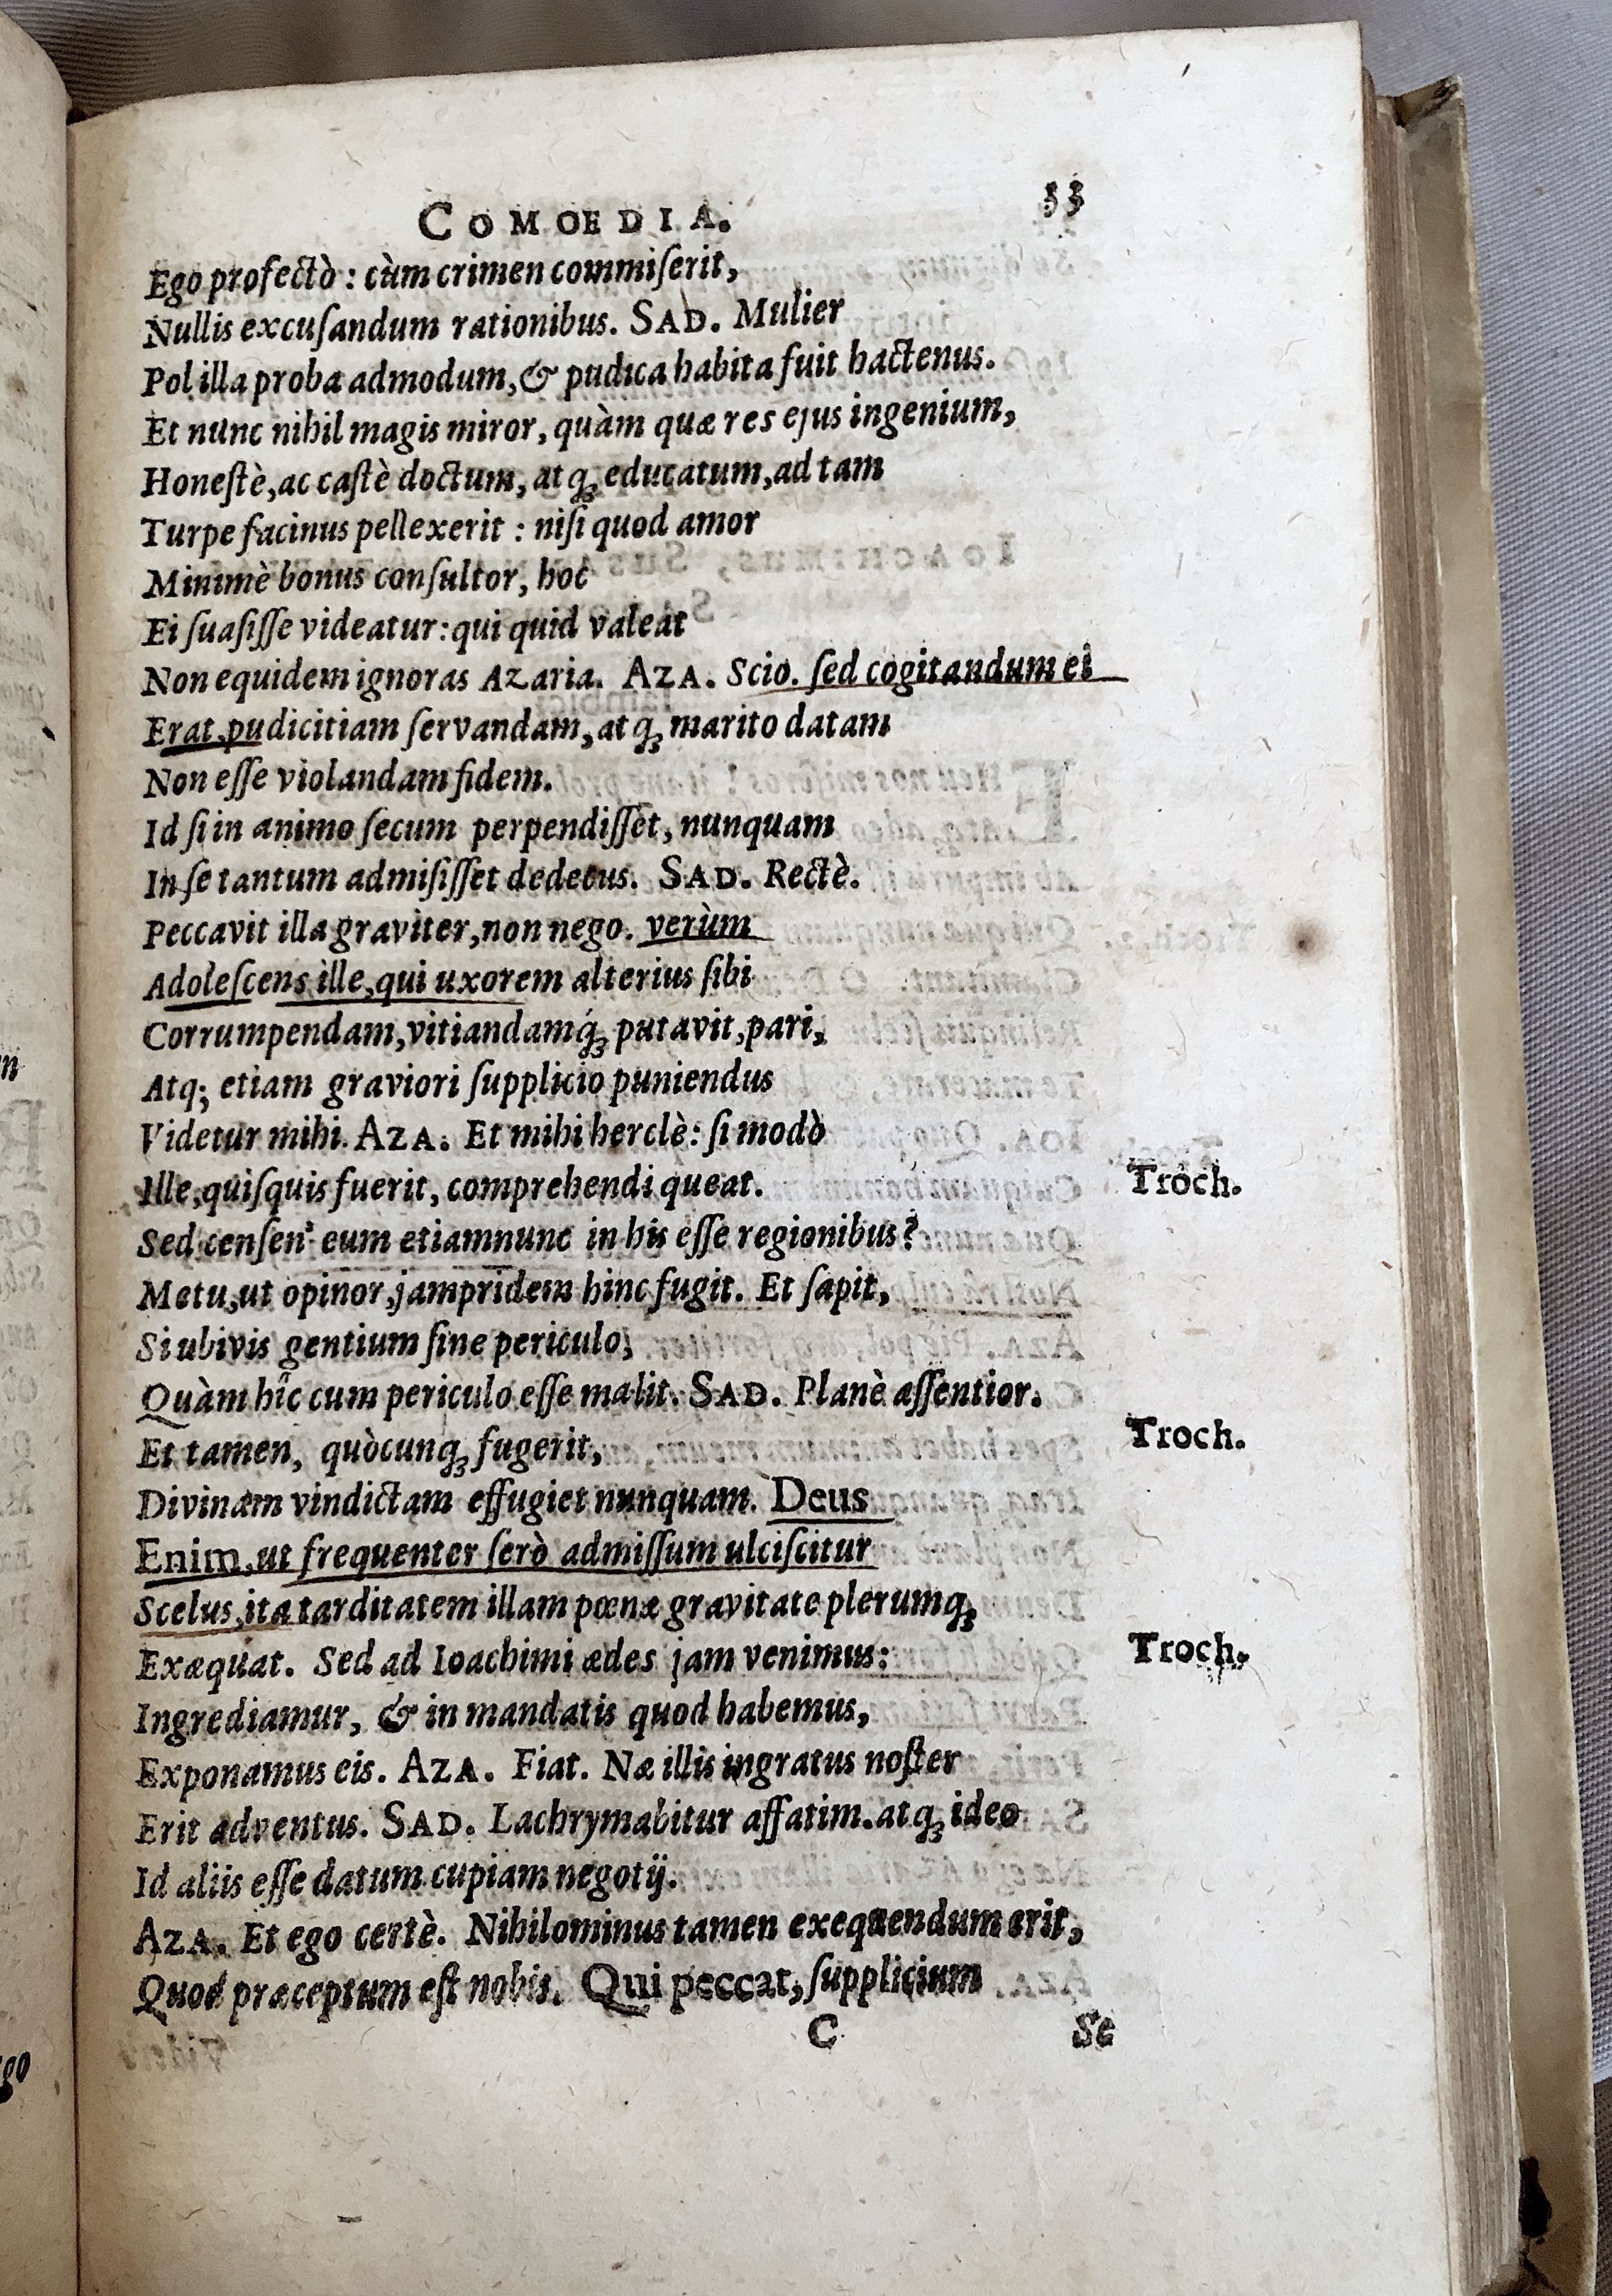 COMOEDIA. 33
Ego profectò: cùm crimen commiſerit,
Nullis excuſandum rationibus. SAD. Mulier
Pol illa proba admodum, & pudica habita fuit hactenus.
Et nunc nihil magis miror, quàm quæ res ejus ingenium,
Honeſtè, ac caſtè doctum, atq; educatum, ad tam
Turpe facinus pellexerit: niſi quod amor
Minimè bonus conſultor, hoc
Ei ſuaſiſſe videatur: qui quid valeat
Non equidem ignoras Azaria. AZA. Scio. ſed cogitandum ei
Erat, pudicitiam ſervandam, atq; marito datam
Non eſſe violandam fidem.
Id ſi in animo ſecum perpendiſſet, nunquam
In ſe tantum admiſiſſet dedecus. SAD. Rectè.
Peccavit illa graviter, non nego. verùm
Adoleſcens ille, qui uxorem alterius ſibi
Corrumpendam, vitiandamq́; putavit, pari,
Atq; etiam graviori ſupplicio puniendus
Videtur mihi. AZA. Et mihi herclè: ſi modò
Ille, quiſquis fuerit, comprehendi queat. Troch.
Sed cenſen' eum etiamnunc in his eſſe regionibus?
Metu, ut opinor, jampridem hinc fugit. Et ſapit,
Si ubivis gentium ſine periculo,
Quàm hîc cum periculo eſſe malit. SAD. Planè aſſentior.
Et tamen, quòcunq; fugerit, Troch.
Divinam vindictam effugiet nunquam. Deus
Enim, ut frequenter ſerò admiſſum ulciſcitur
Scelus, ita tarditatem illam pœnæ gravitate plerumq;
Exæquat. Sed ad Ioachimi ædes jam venimus: Troch.
Ingrediamur, & in mandatis quod habemus,
Exponamus eis. AZA. Fiat. Næ illis ingratus noſter
Erit adventus. SAD. Lachrymabitur affatim. atq; ideo
Id aliis eſſe datum cupiam negotij.
AZA. Et ego certè. Nihilominus tamen exequendum erit,
Quod præceptum eſt nobis. Qui peccat, ſupplicium
C Se